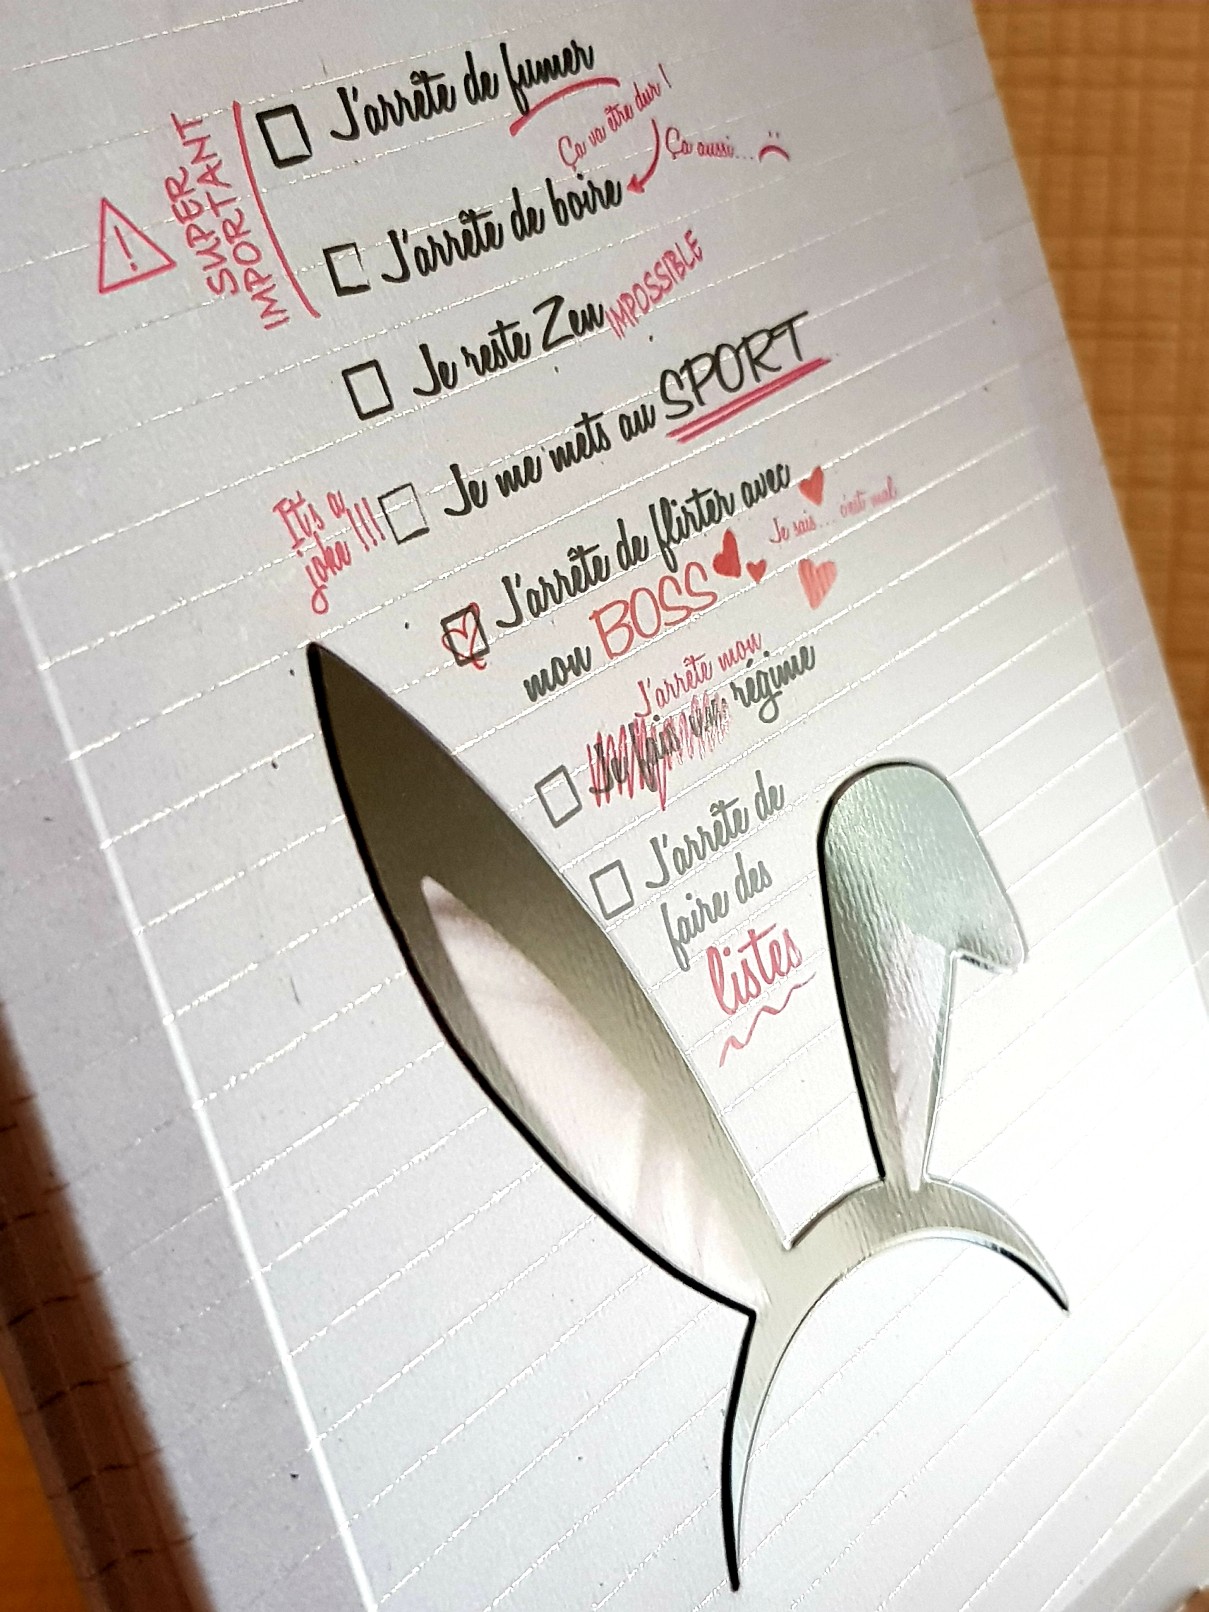 J'arrête de fumer
Ça va être dur !
Ça aussi...
SUPER
IMPORTANT
J'arrête de boire
Je reste Zen IMPOSSIBLE
Je me mets au SPORT
It's a
joke !!!
J'arrête de flirter avec
mon BOSS
Je sais... c'est mal
J'arrête mon
Je fais un régime
J'arrête de
faire des
listes